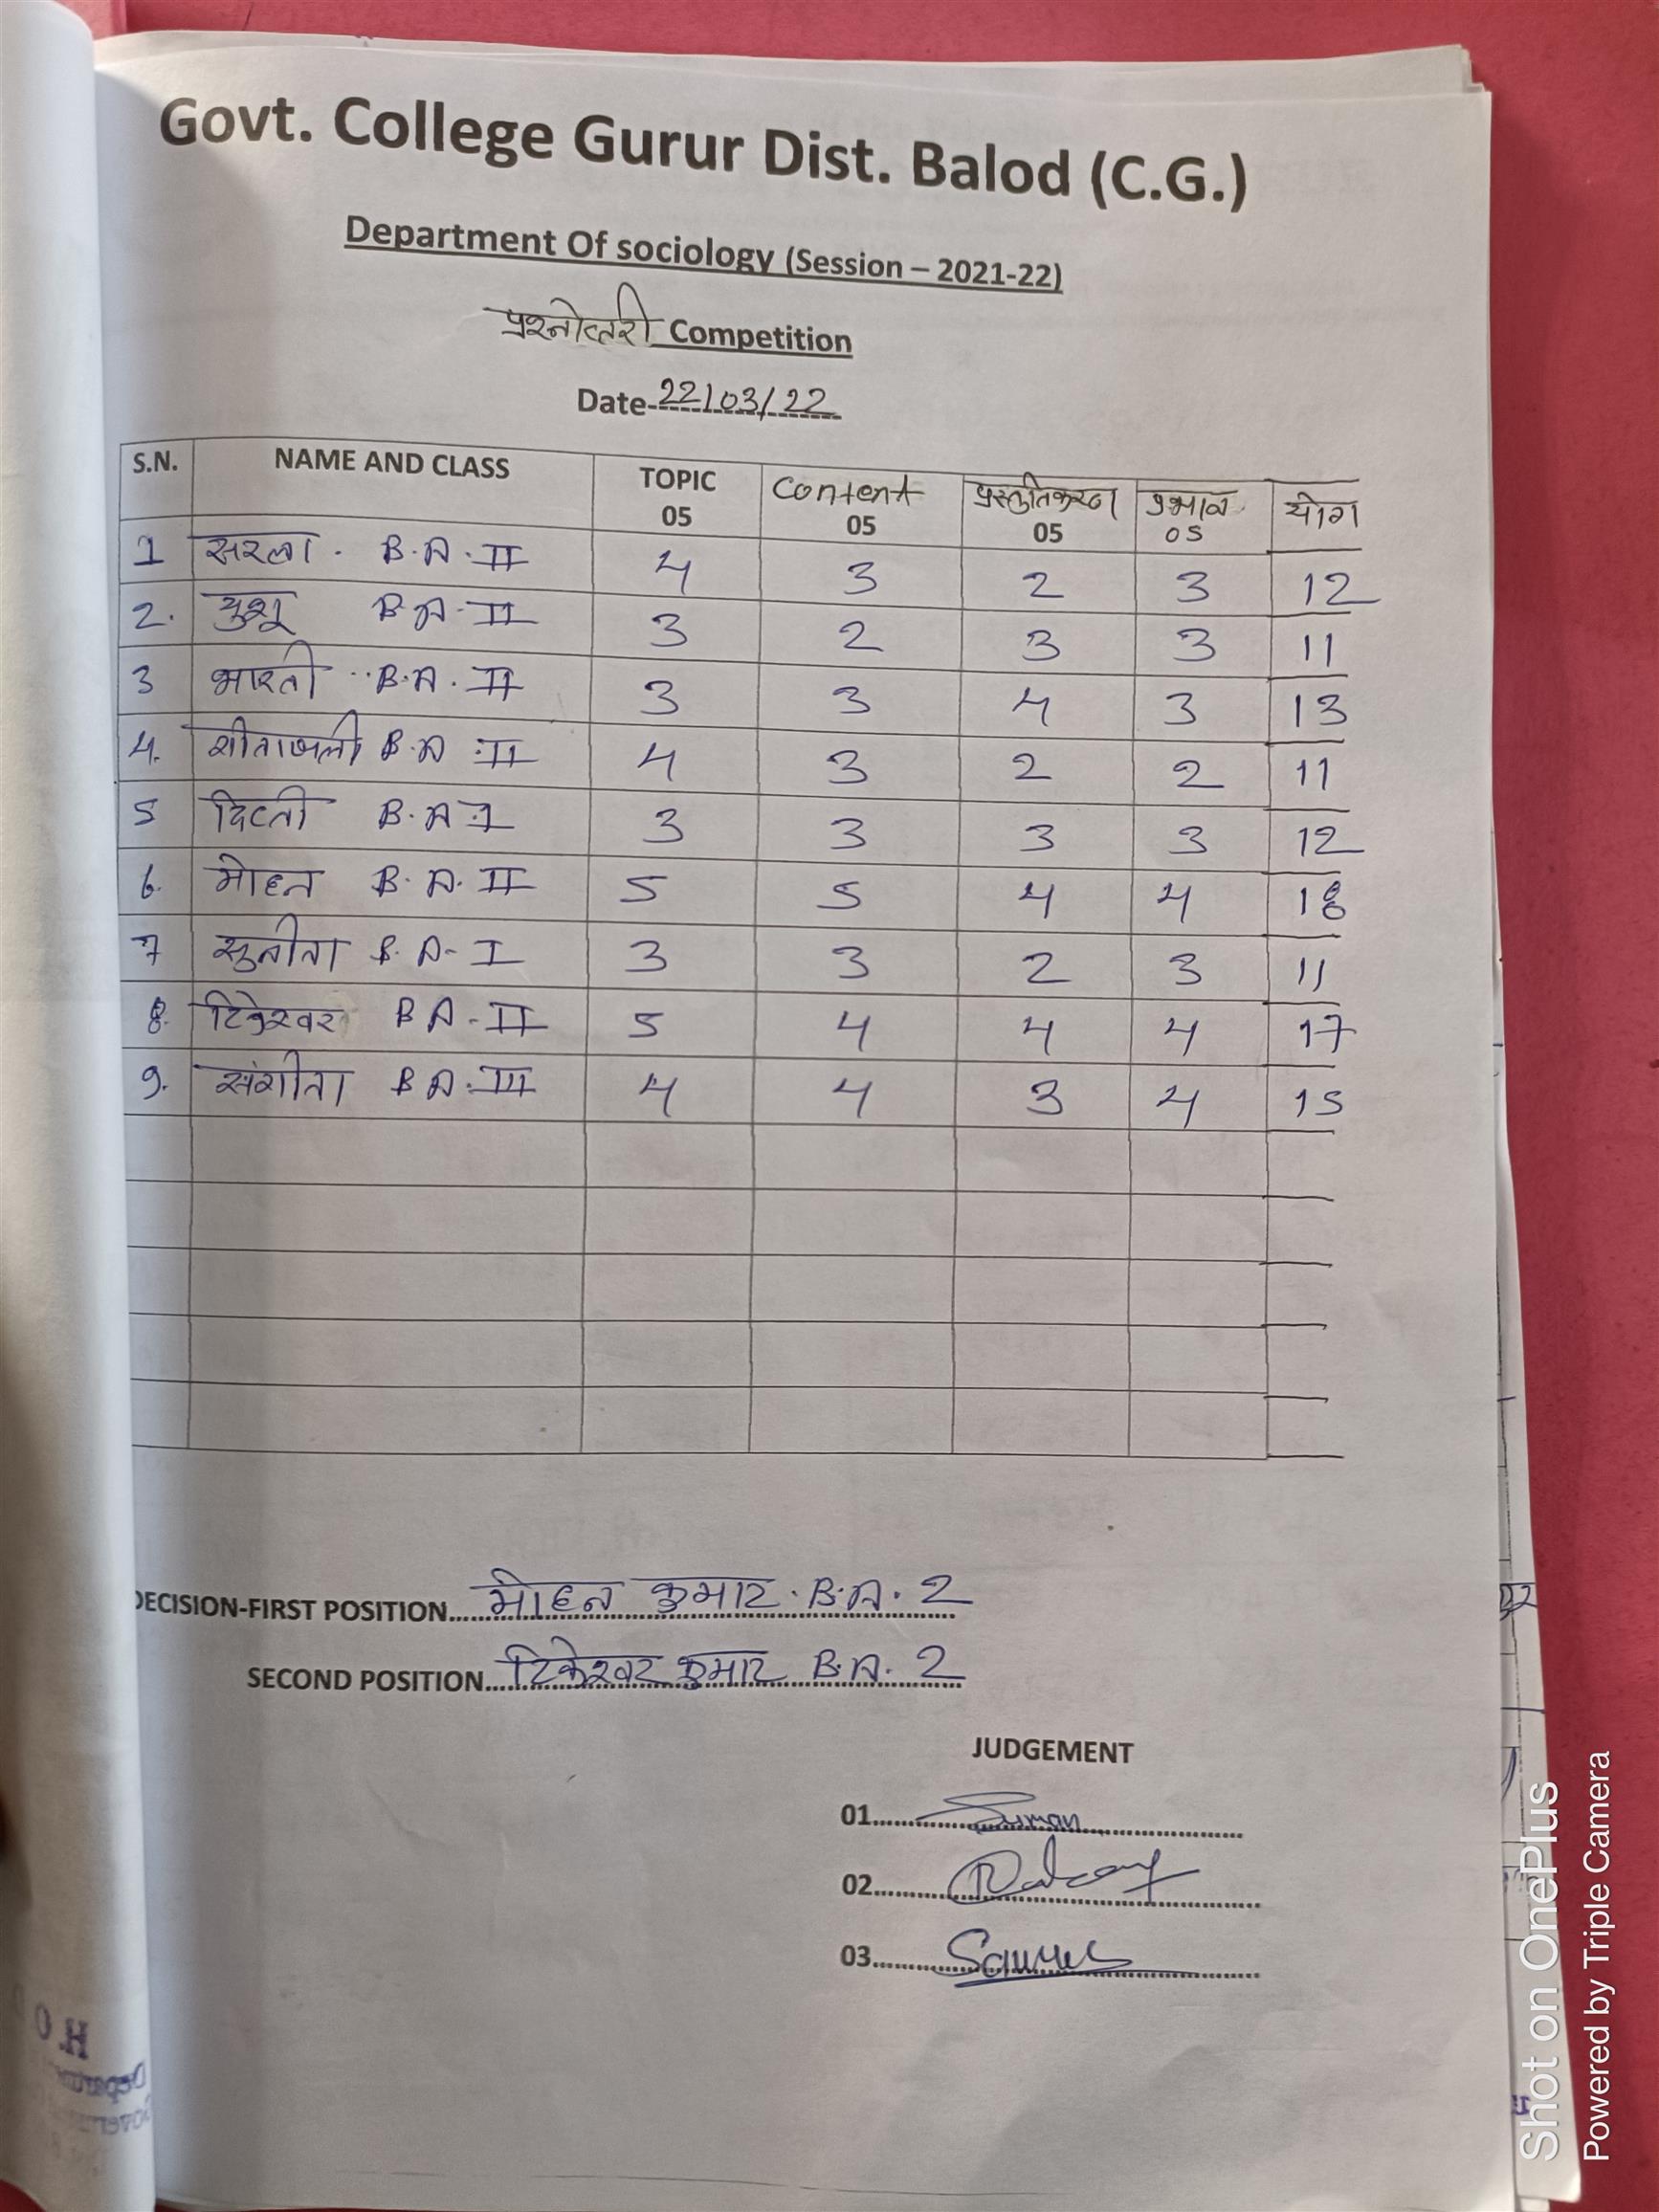 Govt. College Gurur Dist. Balod (C.G.)
Department Of sociology (Session – 2021-22)
प्रश्नोत्तरी Competition
Date- 22/03/22
S.N. NAME AND CLASS TOPIC 05 Content 05 प्रस्तुतिकरण 05 प्रभाव 05 योग
1 सरला . B.A. II 4 3 2 3 12
2. B.A-II 3 2 3 3 11
3 भारती B.A. II 3 3 4 3 13
4. गीतांजली B.A II 4 3 2 2 11
5 B.A I 3 3 3 3 12
6. मोहन B.A. II 5 5 4 4 18
7 सुनीता B.A- I 3 3 2 3 11
8. टिकेश्वर BA-II 5 4 4 4 17
9. संगीता BA.III 4 4 3 4 15
DECISION-FIRST POSITION.....मोहन कुमार. B.A. 2
SECOND POSITION.....टिकेश्वर कुमार B.A. 2
JUDGEMENT
01..... Suman
02.....
03.....
Shot on OnePlus
Powered by Triple Camera